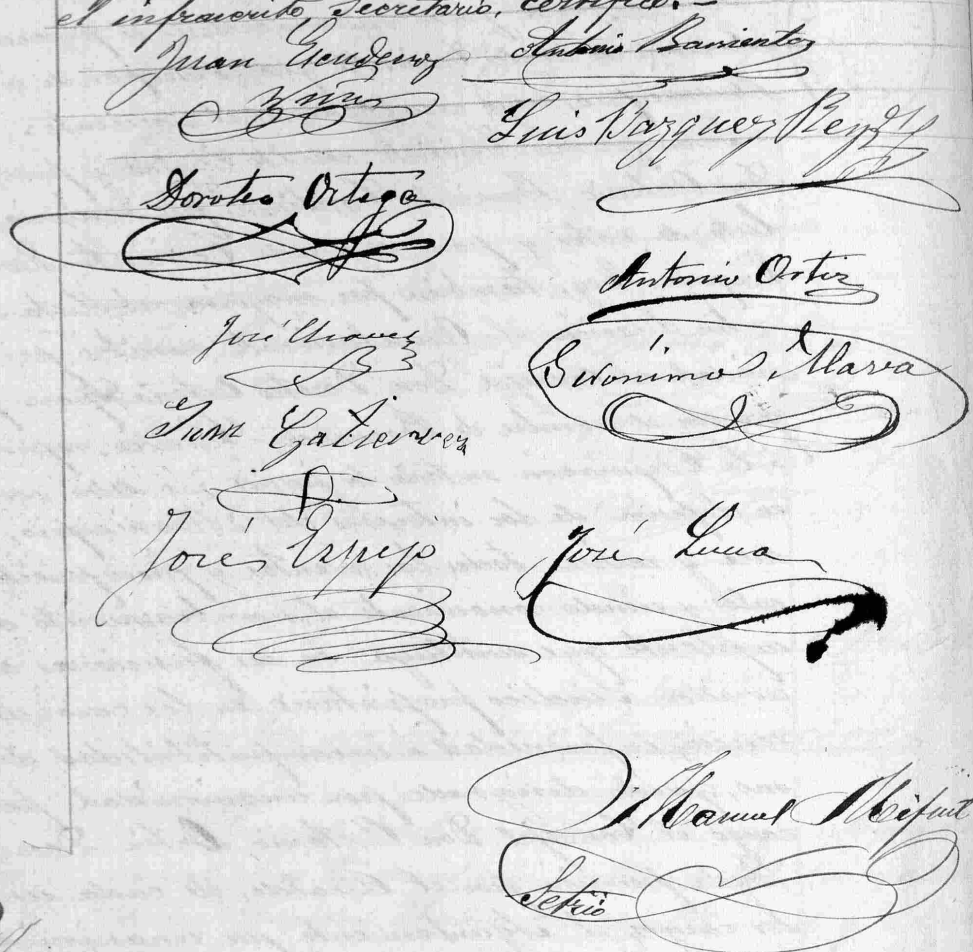 el infrascrito, Secretario, certifico.-
Juan Escudero Antonio Barrientos
Luis Bazquez Rey
Doroteo Ortega
Antonio Ortiz
José Chaves
Gerónimo Alarva
Juan Gatierrez
José Espejo José Luna
Manuel
Setrio